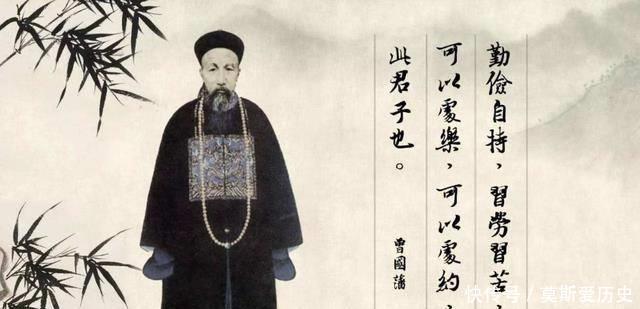 勤儉自持，習勞習苦，
可以處樂，可以處約，
此君子也。
曾國藩
快传号／莫斯爱历史